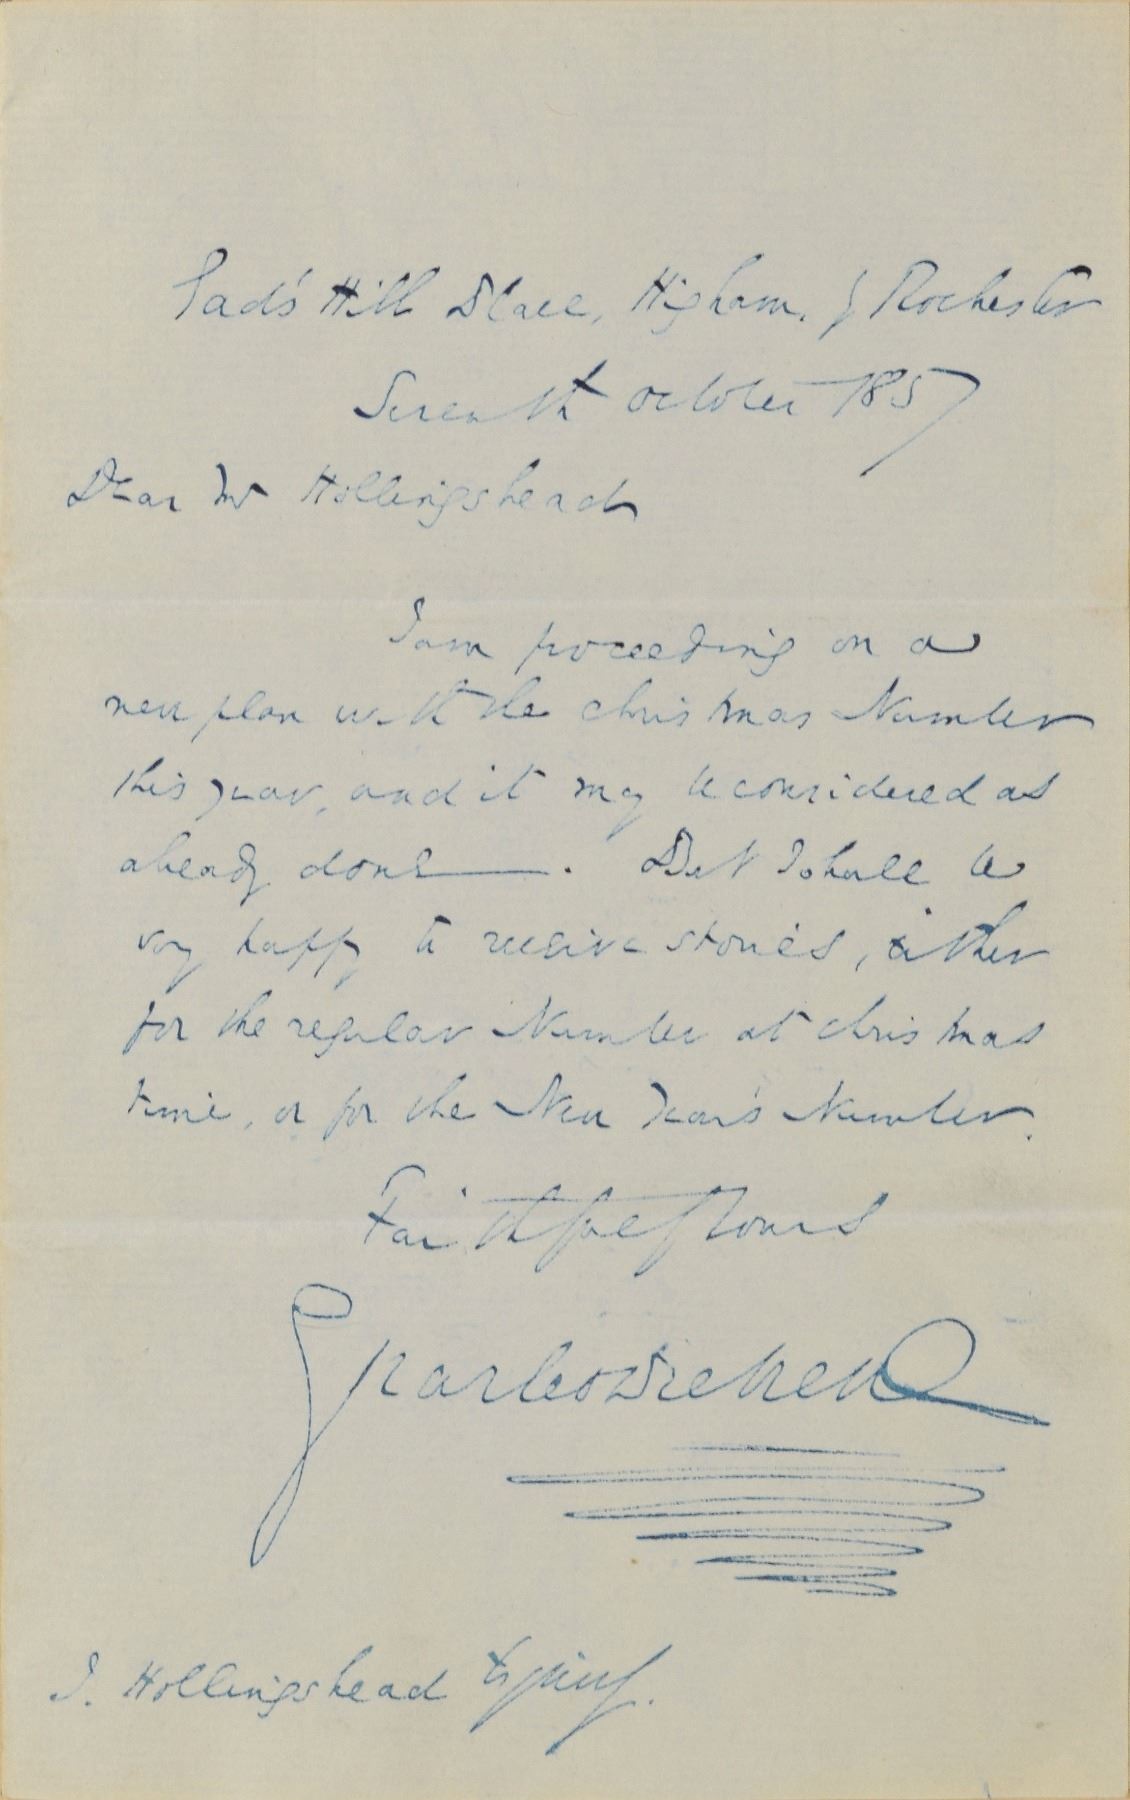 Gad's Hill Place, Higham, by Rochester
Seventh October 1857
Dear Mr Hollingshead
I am proceeding on a
new plan with the Christmas Number
this year, and it may be considered as
already done —. But I shall be
very happy to receive stories, either
for the regular Number at Christmas
time, or for the New Year's Number.
Faithfully Yours
Charles Dickens
J. Hollingshead Esquire.